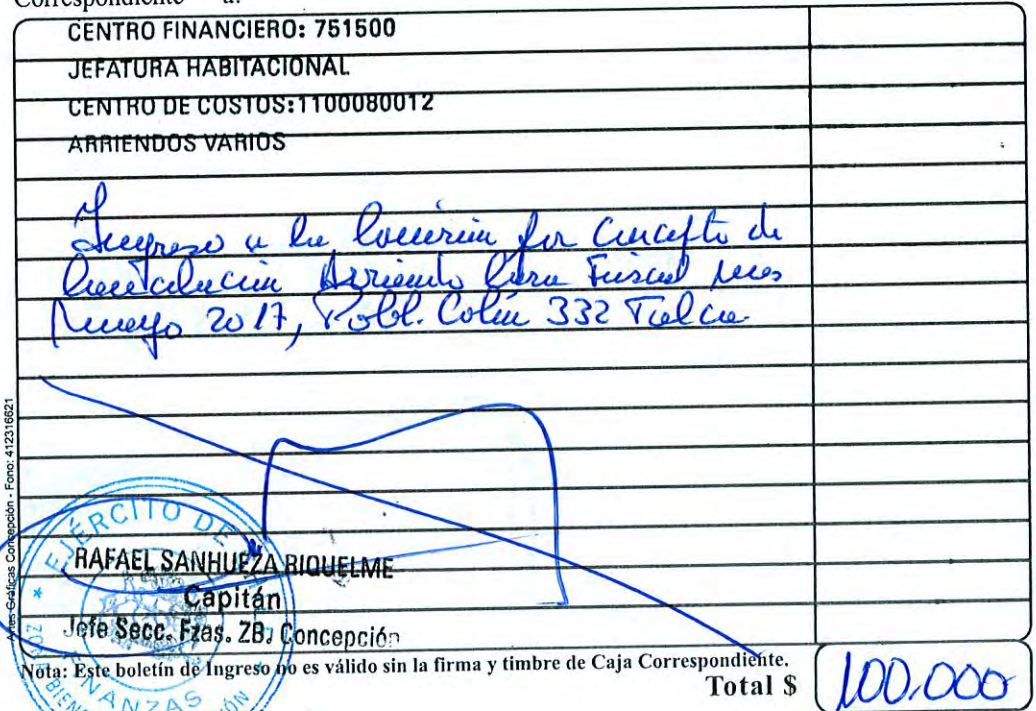 Correspondiente a:
CENTRO FINANCIERO: 751500
JEFATURA HABITACIONAL
CENTRO DE COSTOS:1100080012
ARRIENDOS VARIOS
Ingreso a la por Concepto de
Arriendo Casa Fiscal mes
Mayo 2017, Pobl. Colín 332 Talca
Artes Gráficas Concepción - Fono: 412316621
EJÉRCITO DE
RAFAEL SANHUEZA RIQUELME
Capitán
Jefe Secc. Fzas. ZB. Concepción
Nota: Este boletín de Ingreso no es válido sin la firma y timbre de Caja Correspondiente.
Total $ 100.000